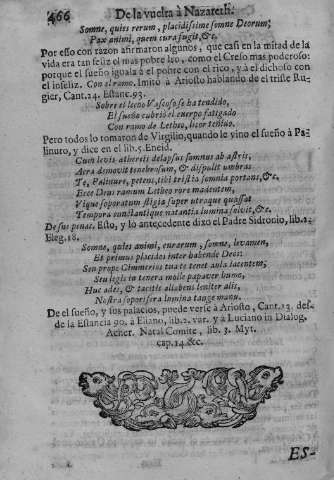 466 De la vuelta à Nazareth.
Somne, quies rerum, placidissime somne Deorum;
Pax animi, quem cura fugit, &c.
Por esso con razon afirmaron algunos, que casi en la mitad de la
vida era tan feliz el mas pobre Iro, como el Creso mas poderoso:
porque el sueño iguala à el pobre con el rico, y à el dichoso con
el infeliz. Con el ramo. Imitò à Ariosto hablando de el triste Ru-
gier, Cant. 14. Estanc. 93.
Sobre el lecho Vascoso se ha tendido,
El sueño cubriò el cuerpo fatigado
Con ramo de Letheo, licor teñido.
Pero todos lo tomaron de Virgilio, quando le vino el sueño à Pa-
linuro, y dice en el lib. 5. Eneid.
Cum levis æthereis delapsus somnus ab astris,
Aera demovit tenebrosum, & dispulit umbras
Te, Palinure, petens, tibi tristia somnia portans, &c.
Ecce Deus ramum Letheo rore madentem,
Vique soporatum stigia super utraque quassat
Tempora cunctantique natantia lumina solvit, &c.
De sus penas. Esto, y lo antecedente dixo el Padre Sidronio, lib. 1.
Eleg. 18.
Somne, quies animi, curarum, somne, levamen,
Et primus placidos inter habende Deos:
Seu prope Cimmerios tua te tenet aula iacentem;
Seu legis in tenera molle papaver humo,
Huc ades, & tacitis allabens leniter alis,
Nostra soporifera lumina tange manu.
De el sueño, y sus palacios, puede verse à Ariosto, Cant. 13. des-
de la Estancia 90. à Eliano, lib. 2. var. y à Luciano in Dialog.
Acher. Natal Comite, lib. 3. Myt.
cap. 14. &c.
ES-